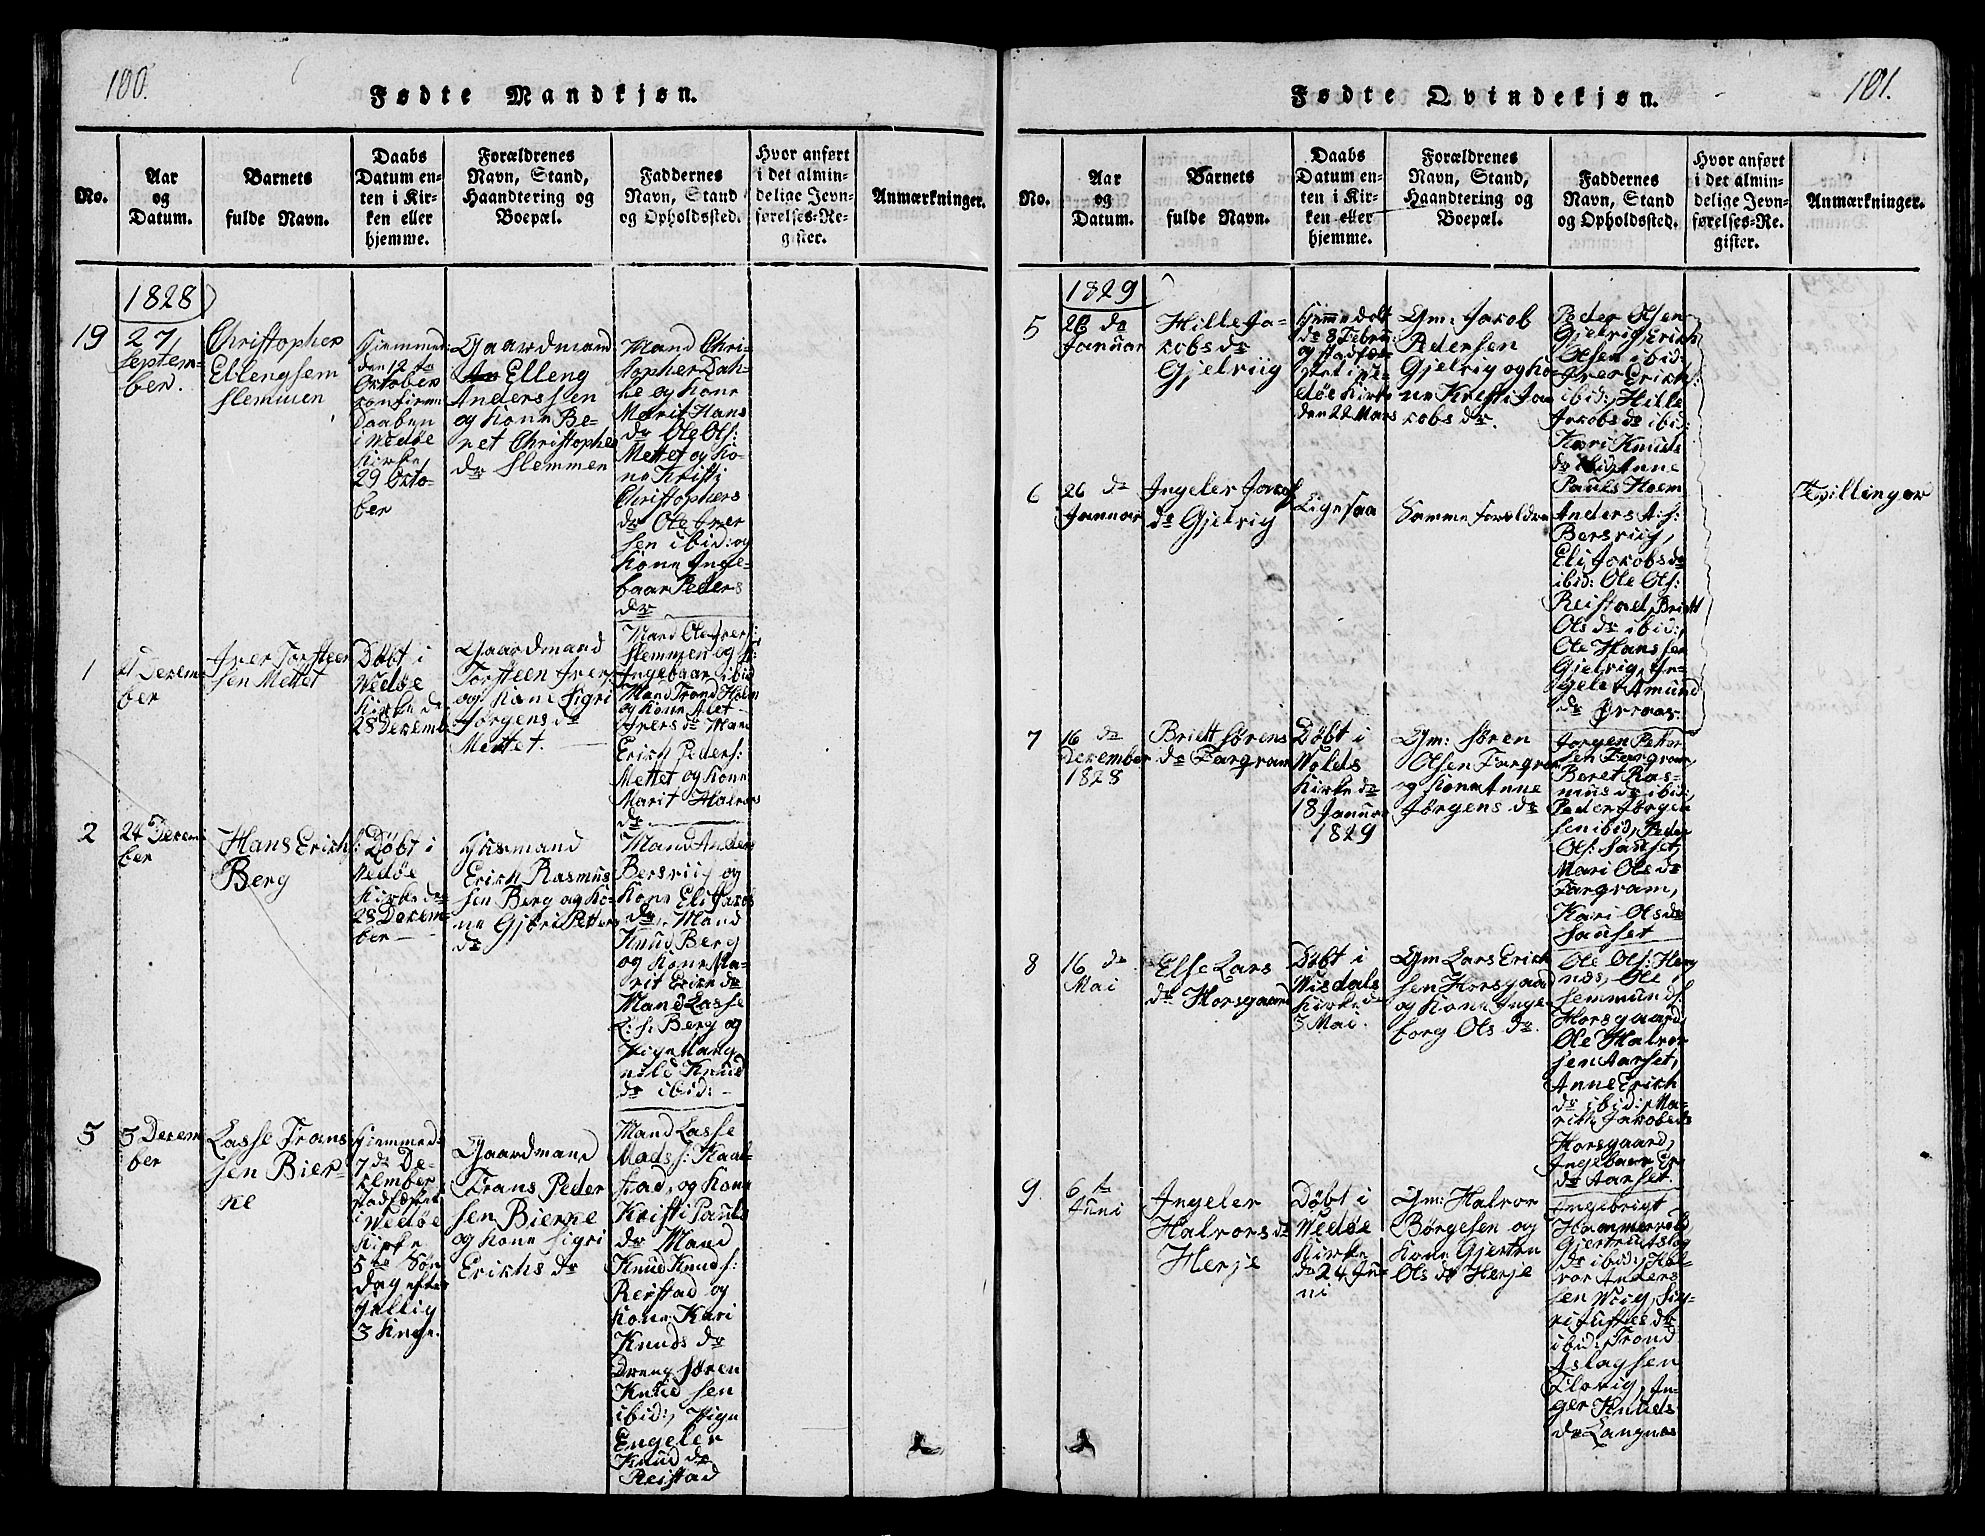 100.
Fødte Mandkjøn.
No.
Aar
og
Datum.
Barnets
fulde Navn.
Daabs
Datum en-
ten i Kir-
ken eller
hjemme.
Forældrenes
Navn, Stand,
Haandtering og
Boepæl.
Faddernes
Navn, Stand
og Opholdssted.
Hvor anført
i det almin-
delige Jevn-
førelses-Re-
gister.
Anmærkninger.
1828
19
27
Septem-
ber.
Christopher
Ellengsem
Slemmen
Hiemmed:
den 12 te
Octtober
confirm:
Daaben
i Wedøe
Kirke,
29 Octo-
ber
Gaardmand
Elleng
Anderssen
og Kone Be-
ret Christophe
dr Slemmen
Mand Chri-
stopher Dah-
le og Kone
Marit Hans
dr Ole Ols:
Mettet og Ko-
ne Kristj
Christophers
dr Ole Iver
sen ibid: og
Kone Inge-
baar Peders
dr
1
Decem-
ber
Iver Torsteen
sen Mettet
Døbt i
Wedøe
Kirke d:
28 Decemb:
Gaardmand
Torsteen Ivers:
og Kone Sigri
Jørgens dr
Mettet.
Mand Ole Ivers:
Slemmen og K:
Ingebaar ibid
Mand Trond Holm
og Kone Alet
Ivers dr Man
Erich Peders:
Mettet og Kone
Marit Halvors
dr
2
24 Decem
ber
Hans Erichs:
Berg
Døbt i
Wedøe
Kirke dn
28 Decem-
ber
Husmand
Erich Rasmus
sen Berg og Ko-
ne Gjøri Petter
dr
Mand Anders
Bersviig og
Kone Eli Jakobs
dr, Mand
Knud Berg
og Kone Ma-
rit Erichs dr
Mand Lasse
L: s: Berg og
Pige Mang
nild Knud
dr ibid:
3 Decem
ber
Lasse Frans
sen Bier-
ke
Hiemmed:
7 dn De-
cember,
stadfæstet
i Wedøe
Kirke
5te Søn
dag efter
hellig
3 Konge.
Gaardmand
Frans Peder
sen Bierke
og Kone Sigri
Erichs dr
Mand Lasse
Mads s:
stad, og Kone
Kristi Pauls
dr Mand
Knud Knuds:
Reistad og
Kone Kari
Knuds dr
Dreng Søren
Knud sen
ibid:, Pige
Engeler
Knud dr
Reistad
101.
Fødte Qvindekjøn.
No.
Aar
og
Datum.
Barnets
fulde Navn.
Daabs
Datum en-
ten i Kir-
ken eller
hjemme.
Forældrenes
Navn, Stand,
Haandtering og
Boepæl.
Faddernes
Navn, Stand
og Opholdssted.
Hvor anført
i det almin-
delige Jevn-
førelses-Re-
gister.
Anmærkninger.
1829
5
26 dn
Januar
Hille Ja-
cobs dr
Gjelviig
Hjemmedøbt
dn 8 Februa
og stadfæ-
stet i We-
døe Kirke
den 22 Mars
Gm: Jacob
Pedersen
Gjelvig og Ko-
ne Kristi Ja
cobs dr.
Peder Olsen
Gjelvig, Erich
Olsen ibid:
Iver Erichs:
ibid:, Hille
Jacobs dr ibid:
Kari Knuds
dr ibid, Anne
Pauls Hoem
6
26 dn
Januar
Ingeler Jacob
dr Gjelvig
Ligesaa
Samme Foreldre
Anders A: s:
Bersviig,
Eli Jacobs dr
ibid: Ole Ols:
Reistad, Britt
Ols dr ibid:,
Ole Hanssen
Gjelvig, In-
geler Amund
dr
Tvillinger
7
16 dn
December
1828
Britt Sørens
dr Fargram
Døbt i
Wolds
Kirke dn
18 Januar
1829
Gm: Søren
Olsen Fargram
og Kone Anne
Jørgens dr
Jørgen Petter
sen Fargram,
Beret Ras-
mus dr ibid:,
Peder Jørgen
sen ibid, Peder
Ols: Sauset,
Mari Ols dr
Fargram,
Kari Ols dr
Sauset
8
16 dn
Mai
Else Lars
dr Horsgaard
Døbt i
Wisdals
Kirke dn
3 Mai.
Gm Lars Erich
sen Horsgaard
og Kone Inge
borg Ols dr.
Ole Ols: Heng
næs, Ole
Semmunds:
Horsgaard,
Ole Halvor
sen Aarset,
Anne Erich
dr ibid:, Ma-
rith Jacobs dr
Horsgaard,
Ingebaar Er
dr Aarset.
9
6 te
Juni
Ingeler
Halvors dr
Herje
Døbt i
Wedøe
Kirke
dn 24 Ju-
ni
Gm: Halvor
Børgesen og
Kone Gjertru
Ols dr Herje
Ingebrigt
Hammervold
Gjertru Aslag
dr ibid:, Hal-
vor Anders
sen Wiig, Sig-
ri Justies dr
ibid:, Trond
Aslagsen
Flovig, In-
ger Knuds
dr Langnes